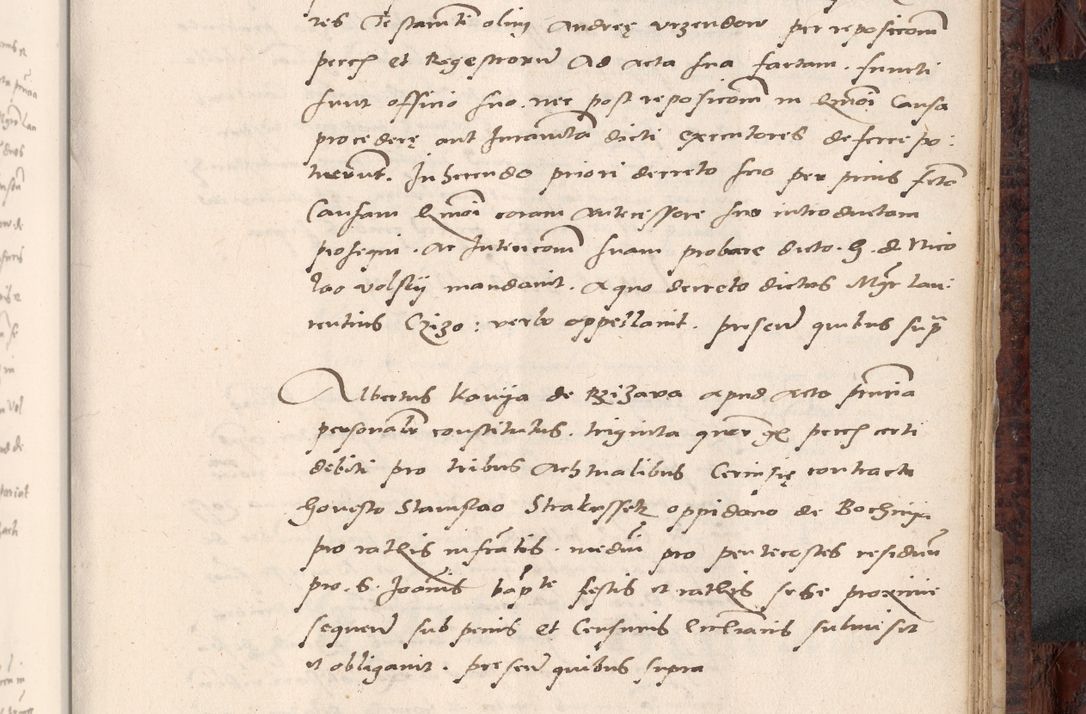 res Testamenti olim Andreę Vrzendow per reposicionem
percep et Regestrorum Ad Acta sua factam. functi
sunt officio suo. nec post reposicionem in huiusmodi Causa
procedere aut Iuramenta dicti executores deferre po:
tuerunt. Inherendo priori decreto suo per prius factam
Causam huiusmodi coram Antecessore suo introductam
prosequi. Ac Intencionem suam probare dicto. G. d. Nico
lao Volsky mandavit. A quo decreto dictus Mgr lau:
rentius Czizo: verbo appellavit. presen quibus supra
Albertus Kavija de Rzizava apud Acta premia
personaliter constitutus. triginta quatuor percep certi
debiti pro tribus Achtualibus Cerevisię contracte
honesto Stanislao Strakussek oppidano de Bochnija
pro rathis infratis. medium pro pentecostes residuum
pro. S. Joannis bapte festis et rathis sese proxime
sequen sub penis et Censuris Ecclianis submisit
et obligavit. presen quibus supra